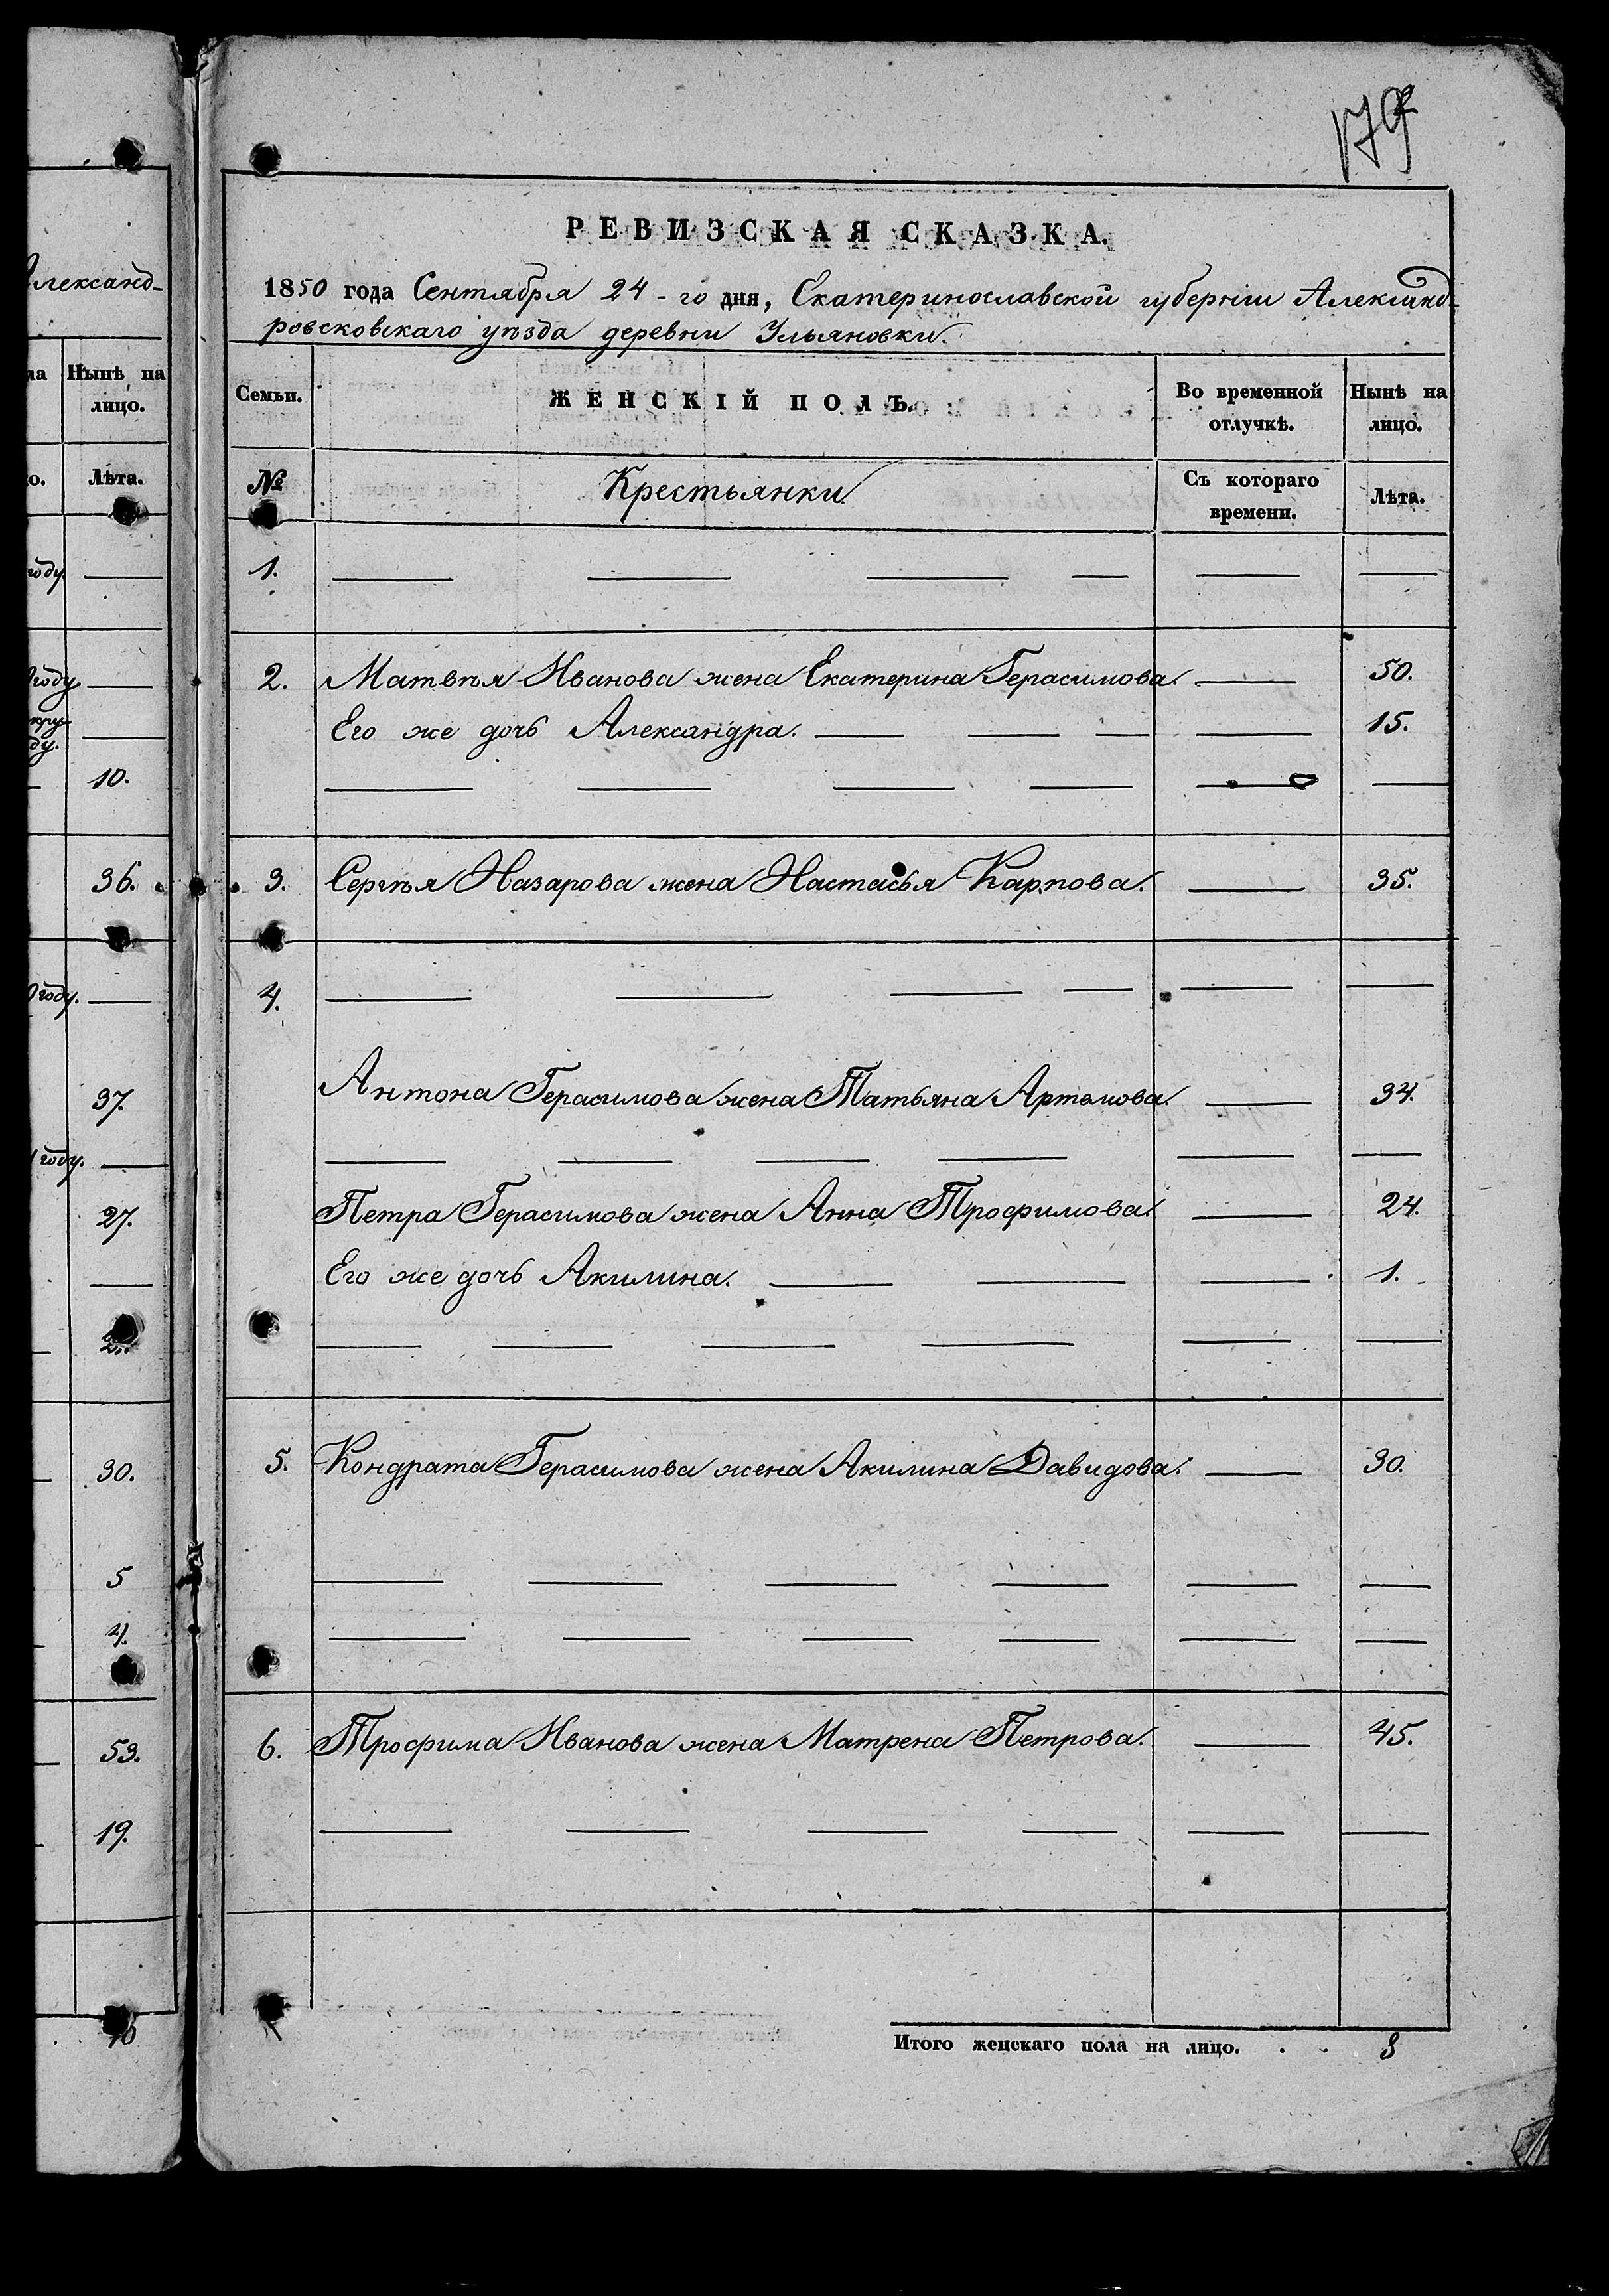 179
РЕВИЗСКАЯ СКАЗКА.
1850 года Сентября 24-го дня, Екатеринославской губерніи Александ-
ровсковскаго уѣзда деревни Ульяновки.
Семьи. ЖЕНСКІЙ ПОЛЪ. Во временной отлучкѣ. Нынѣ на лицо.
№ Крестьянки Съ котораго времени. Лѣта.
1. — — — — — —
2. Матвѣя Иванова жена Екатерина Герасимова. — 50.
Его же дочь Александра. — — — — 15.
— — — — — —
3. Сергѣя Назарова жена Настасья Карпова. — 35.
4. — — — — — —
Антона Герасимова жена Татьяна Артемова. — 34.
— — — — — —
Петра Герасимова жена Анна Трофимова. — 24.
Его же дочь Акилина. — — — 1.
— — — — — —
5. Кондрата Герасимова жена Акилина Давидова. — 30.
— — — — — —
— — — — — —
6. Трофима Иванова жена Матрена Петрова. — 45.
— — — — — —
Итого женскаго пола на лицо. . . 8
Александ-
Нынѣ на лицо.
Лѣта.
году. —
году —
—
10.
36.
году. —
37.
году. —
27.
—
30.
5
4.
53.
19.